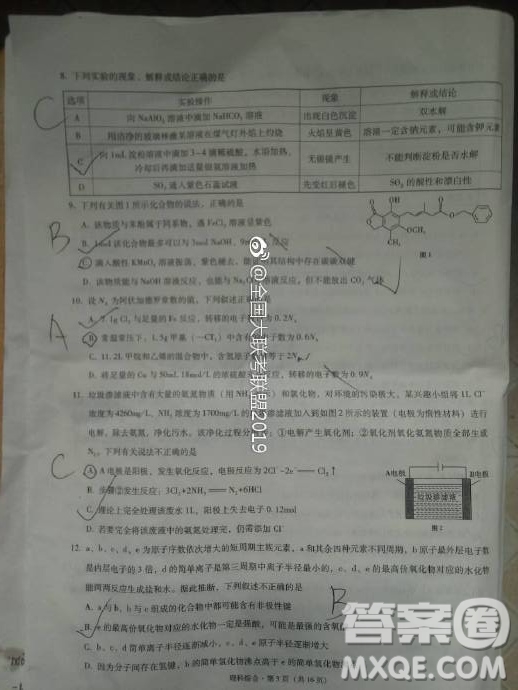 8. 下列实验的现象、解释或结论正确的是
C
选项 实验操作 现象 解释或结论
A 向 NaAlO₂ 溶液中滴加 NaHCO₃ 溶液 出现白色沉淀 双水解
B 用洁净的玻璃棒蘸某溶液在煤气灯外焰上灼烧 火焰呈黄色 溶液一定含钠元素，可能含钾元素
C 向 1mL 淀粉溶液中滴加 3~4 滴稀硫酸，水浴加热， 无银镜产生 不能判断淀粉是否水解
冷却后再滴加适量银氨溶液加热
D SO₂ 通入紫色石蕊试液 先变红后褪色 SO₂ 的酸性和漂白性
9. 下列有关图 1 所示化合物的说法，正确的是
B
A. 该物质与苯酚属于同系物，遇 FeCl₃ 溶液呈紫色
B. 1mol 该化合物最多可以与 3mol NaOH、 反应
C. 滴入酸性 KMnO₄ 溶液振荡，紫色褪去， 其结构中存在碳碳双键
D. 该物质能与 NaOH 溶液反应，也能与 溶液反应，但不能放出 CO₂ 气体
OH
O
OCH₃
CH₃
图 1
10. 设 Nₐ 为阿伏加德罗常数的值，下列叙述正确的是
A
A. 7.1g Cl₂ 与足量的 Fe 反应，转移的电子数为 0.2Nₐ
B. 常温常压下，1.5g 甲基（—CH₃）中含有 子数为 0.6Nₐ
C. 11.2L 甲烷和乙烯的混合物中，含氢原子 等于 2Nₐ
D. 将足量的 Cu 与 50mL 18mol/L 的浓硫酸 ，转移的电子数为 0.9Nₐ
11. 垃圾渗滤液中含有大量的氨氮物质（用 NH₃ 表示）和氯化物，对环境的污染极大。某兴趣小组将 1L Cl⁻
浓度为 4260mg/L、NH₃ 浓度为 1700mg/L 的 渗滤液加入到如图 2 所示的装置（电极为惰性材料）进行
电解，除去氨氮，净化污水。该净化过程分 ：①电解产生氧化剂；②氧化剂氧化氨氮物质全部生成
N₂。下列有关说法不正确的是
C
A. A 电极是阳极，发生氧化反应，电极反应为 2Cl⁻-2e⁻══Cl₂↑
B. 步骤②发生反应：3Cl₂+2NH₃══N₂+6HCl
C. 理论上完全处理该废水 1L，阳极上失去电子 0.12mol
D. 若要完全将该废液中的氨氮处理完，仍需添加 Cl⁻
A电极
B电极
垃圾渗滤液
图 2
12. a、b、c、d、e 为原子序数依次增大的短周期主族元素，a 和其余四种元素不同周期，b 原子最外层电子数
是内层电子的 3 倍，d 的简单离子是第三周期中离子半径最小的，c、d、e 的最高价氧化物对应的水化物
能两两反应生成盐和水。据此推断，下列叙述不正确的是
B
A. a 与 b、b 与 c 组成的化合物中都可能含有非极性键
B. e 的最高价氧化物对应的水化物一定是强酸，可能是最强的含氧
C. b、c、d 简单离子半径逐渐减小，c、d、e 原子半径逐渐增大
D. 因为分子间存在氢键，b 的简单氢化物沸点高于 e 的简单氢化物
理科综合·第 3 页（共 16 页）
@全国大联考联盟2019
答案圈
MXQE.COM